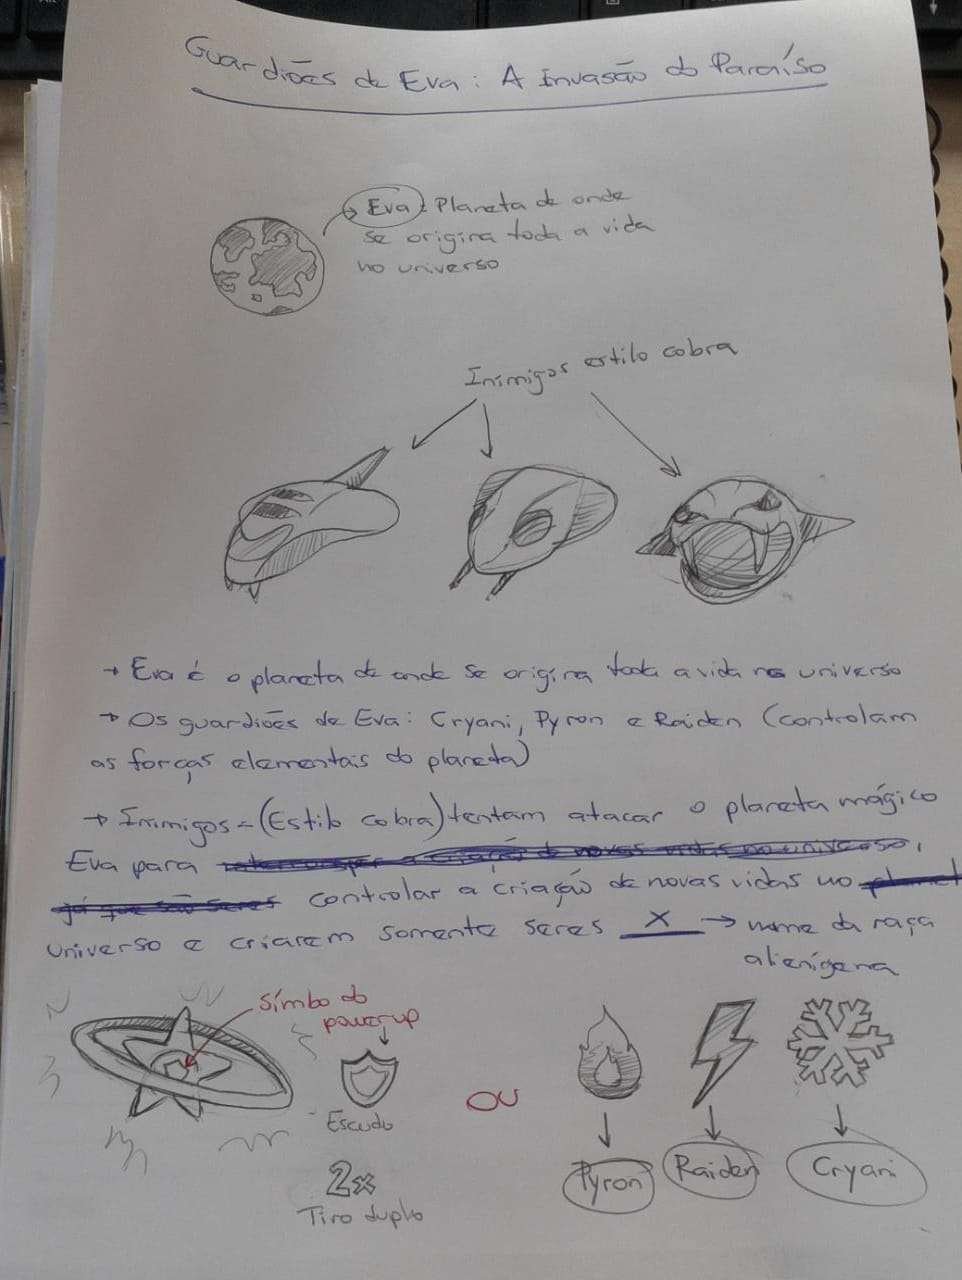 Guardiões de Eva: A Invasão do Paraíso
Eva: Planeta de onde
se origina toda a vida
no universo
Inimigos estilo cobra
→ Eva é o planeta de onde se origina toda a vida no universo
→ Os guardiões de Eva: Cryani, Pyron e Raiden (controlam
as forças elementais do planeta)
→ Inimigos = (Estilo cobra) tentam atacar o planeta mágico
Eva para
controlar a criação de novas vidas no
universo e criarem somente seres X → nome da raça
alienígena
Símbolo do
powerup
Escudo
2x
Tiro duplo
OU
Pyron
Raiden
Cryani